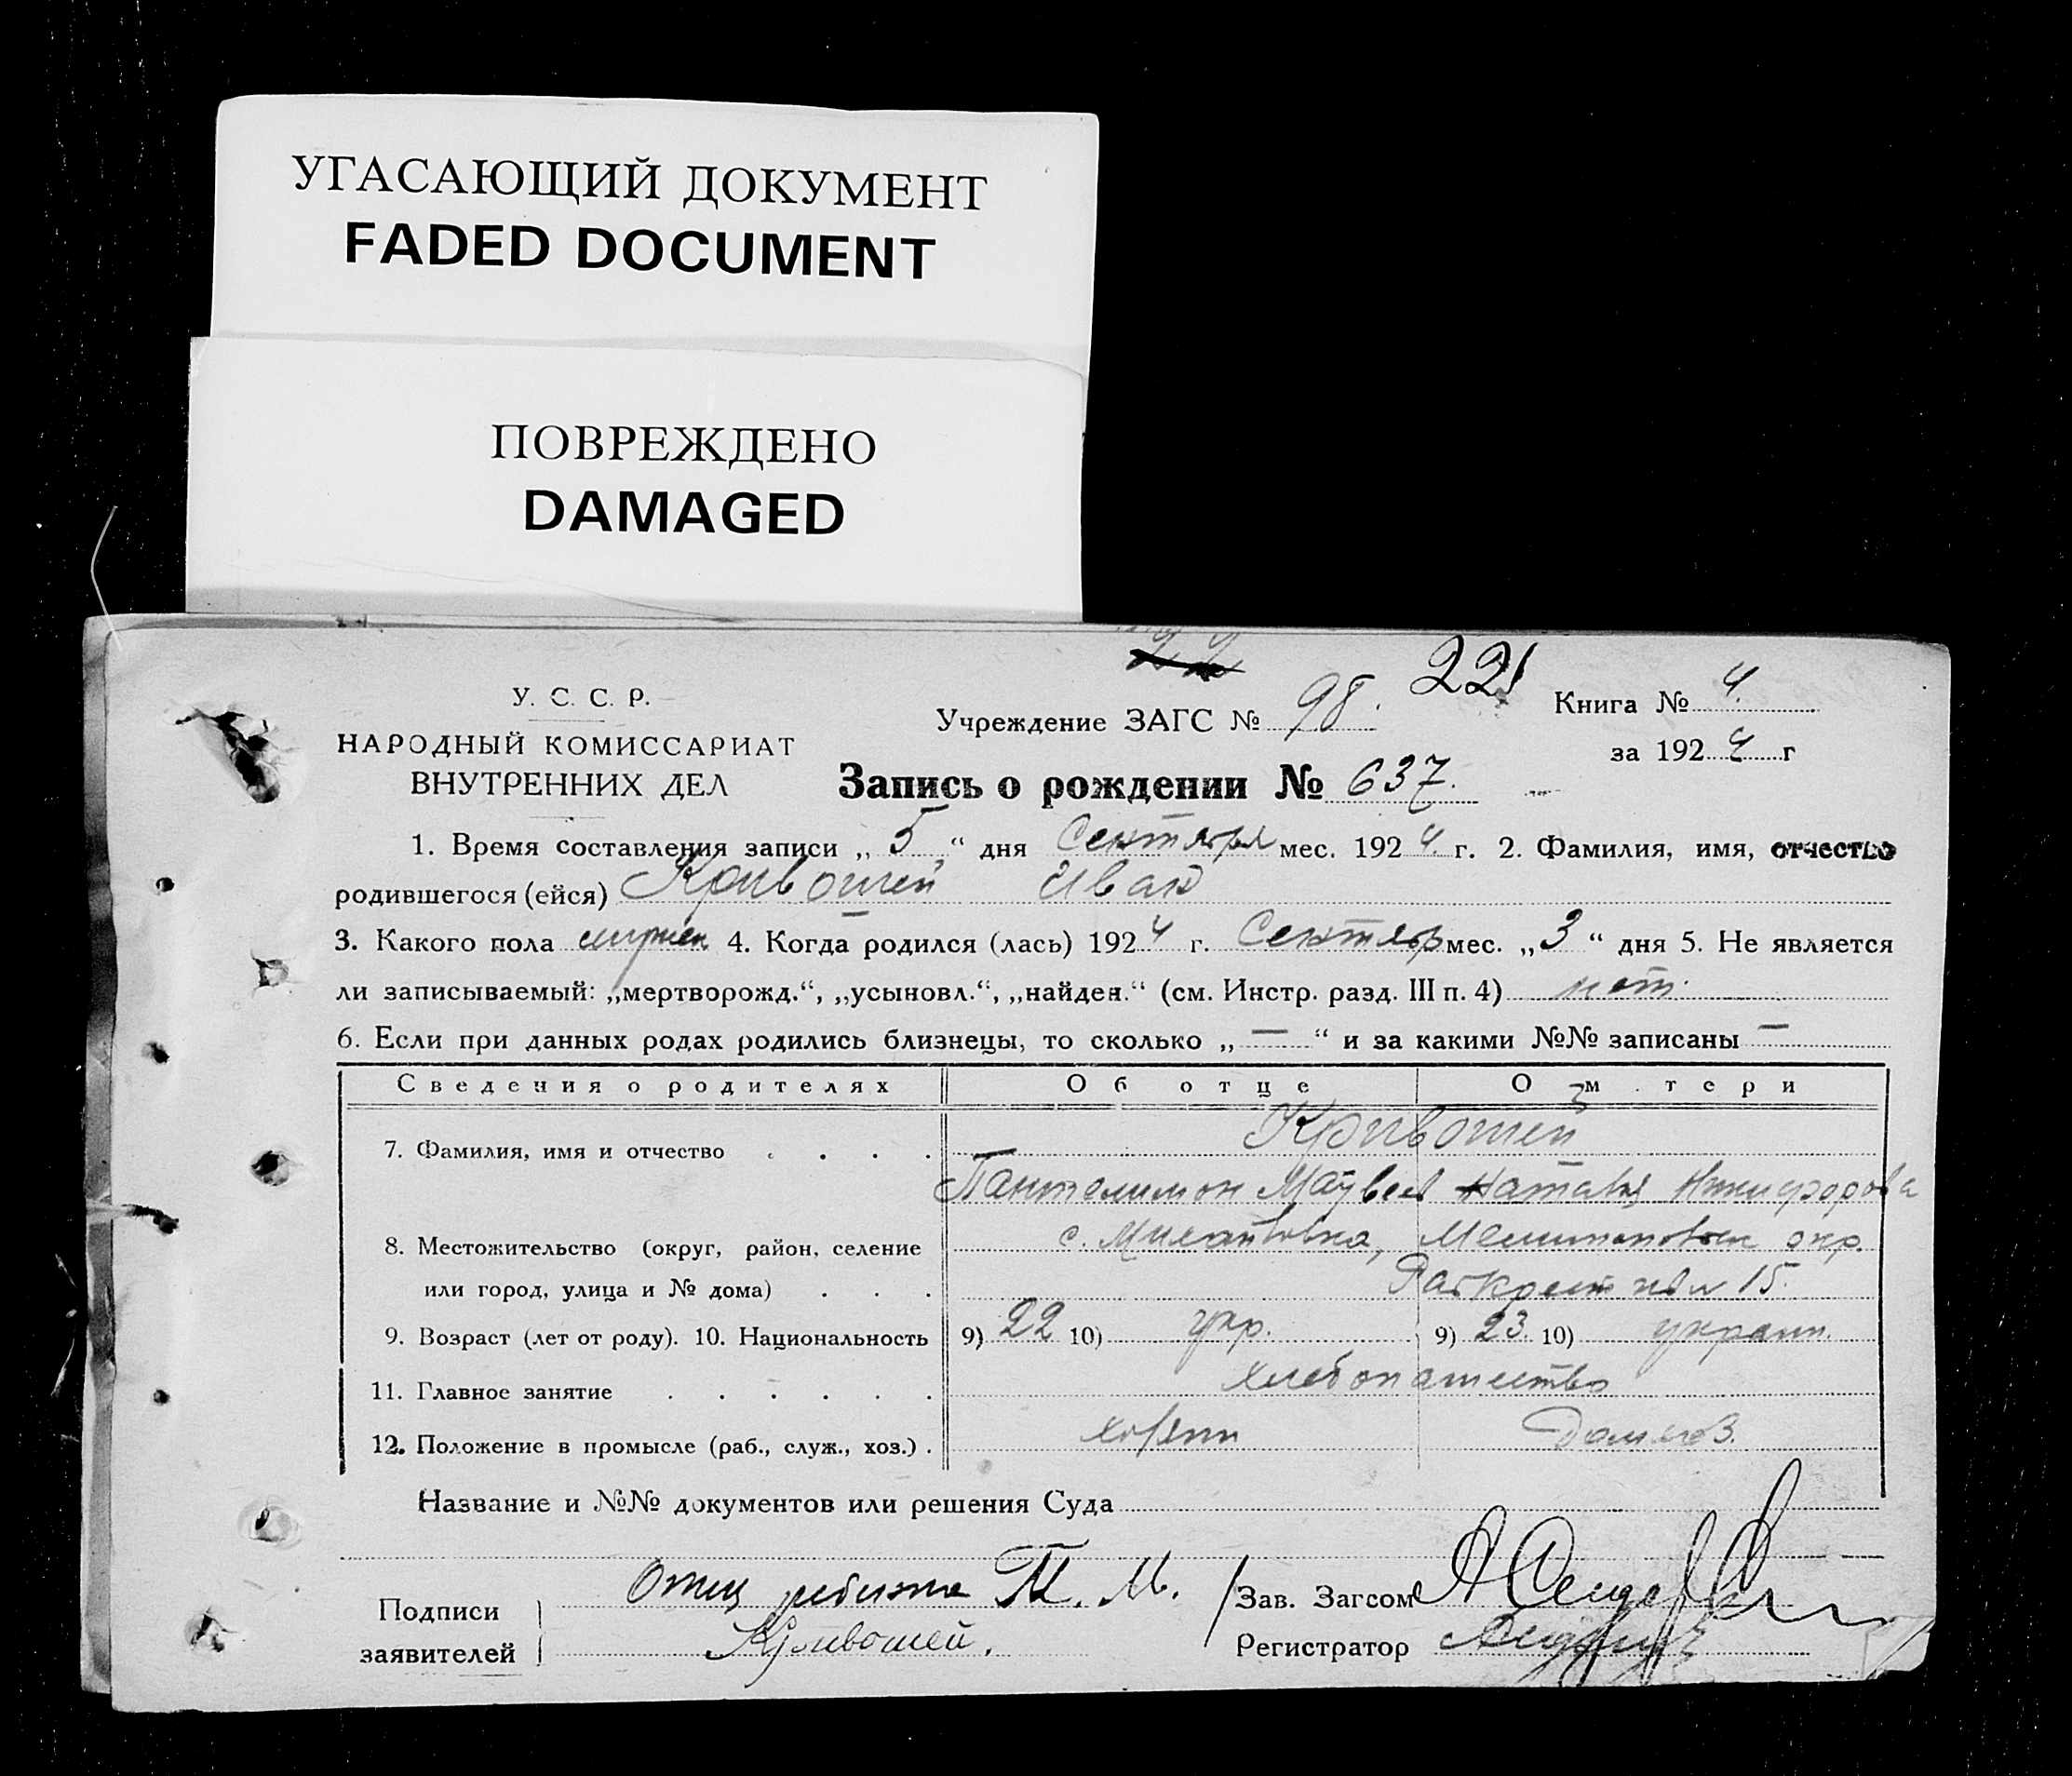 УГАСАЮЩИЙ ДОКУМЕНТ
FADED DOCUMENT
ПОВРЕЖДЕНО
DAMAGED
22
221
У. С. С. Р.
НАРОДНЫЙ КОМИССАРИАТ
ВНУТРЕННИХ ДЕЛ
Учреждение ЗАГС № 98.
Книга № 4.
за 1924 г
Запись о рождении № 637.
1. Время составления записи „ 5 “ дня Сентября мес. 1924 г. 2. Фамилия, имя, отчество
родившегося (ейся) Кривошей Иван
3. Какого пола мужск 4. Когда родился (лась) 1924 г. Сентябр мес. „3“ дня 5. Не является
ли записываемый: „мертворожд.“, „усыновл.“, „найден.“ (см. Инстр. разд. III п. 4) нет.
6. Если при данных родах родились близнецы, то сколько „ — “ и за какими №№ записаны —
Сведения о родителях Об отце О м тери
7. Фамилия, имя и отчество . . . . Кривошей
Пантелимон Матвеев Наталя Никифорова
8. Местожительство (округ, район, селение с. Михайловка, окр.
или город, улица и № дома) . . . 15.
9. Возраст (лет от роду). 10. Национальность 9) 22 10) укр. 9) 23. 10) украин.
11. Главное занятие . . . . . . хлебопашество
12. Положение в промысле (раб., служ., хоз.) . хозяин Домохоз.
Название и №№ документов или решения Суда
Подписи заявителей Отец ребенка П. М. Кривошей.
Зав. Загсом
Регистратор